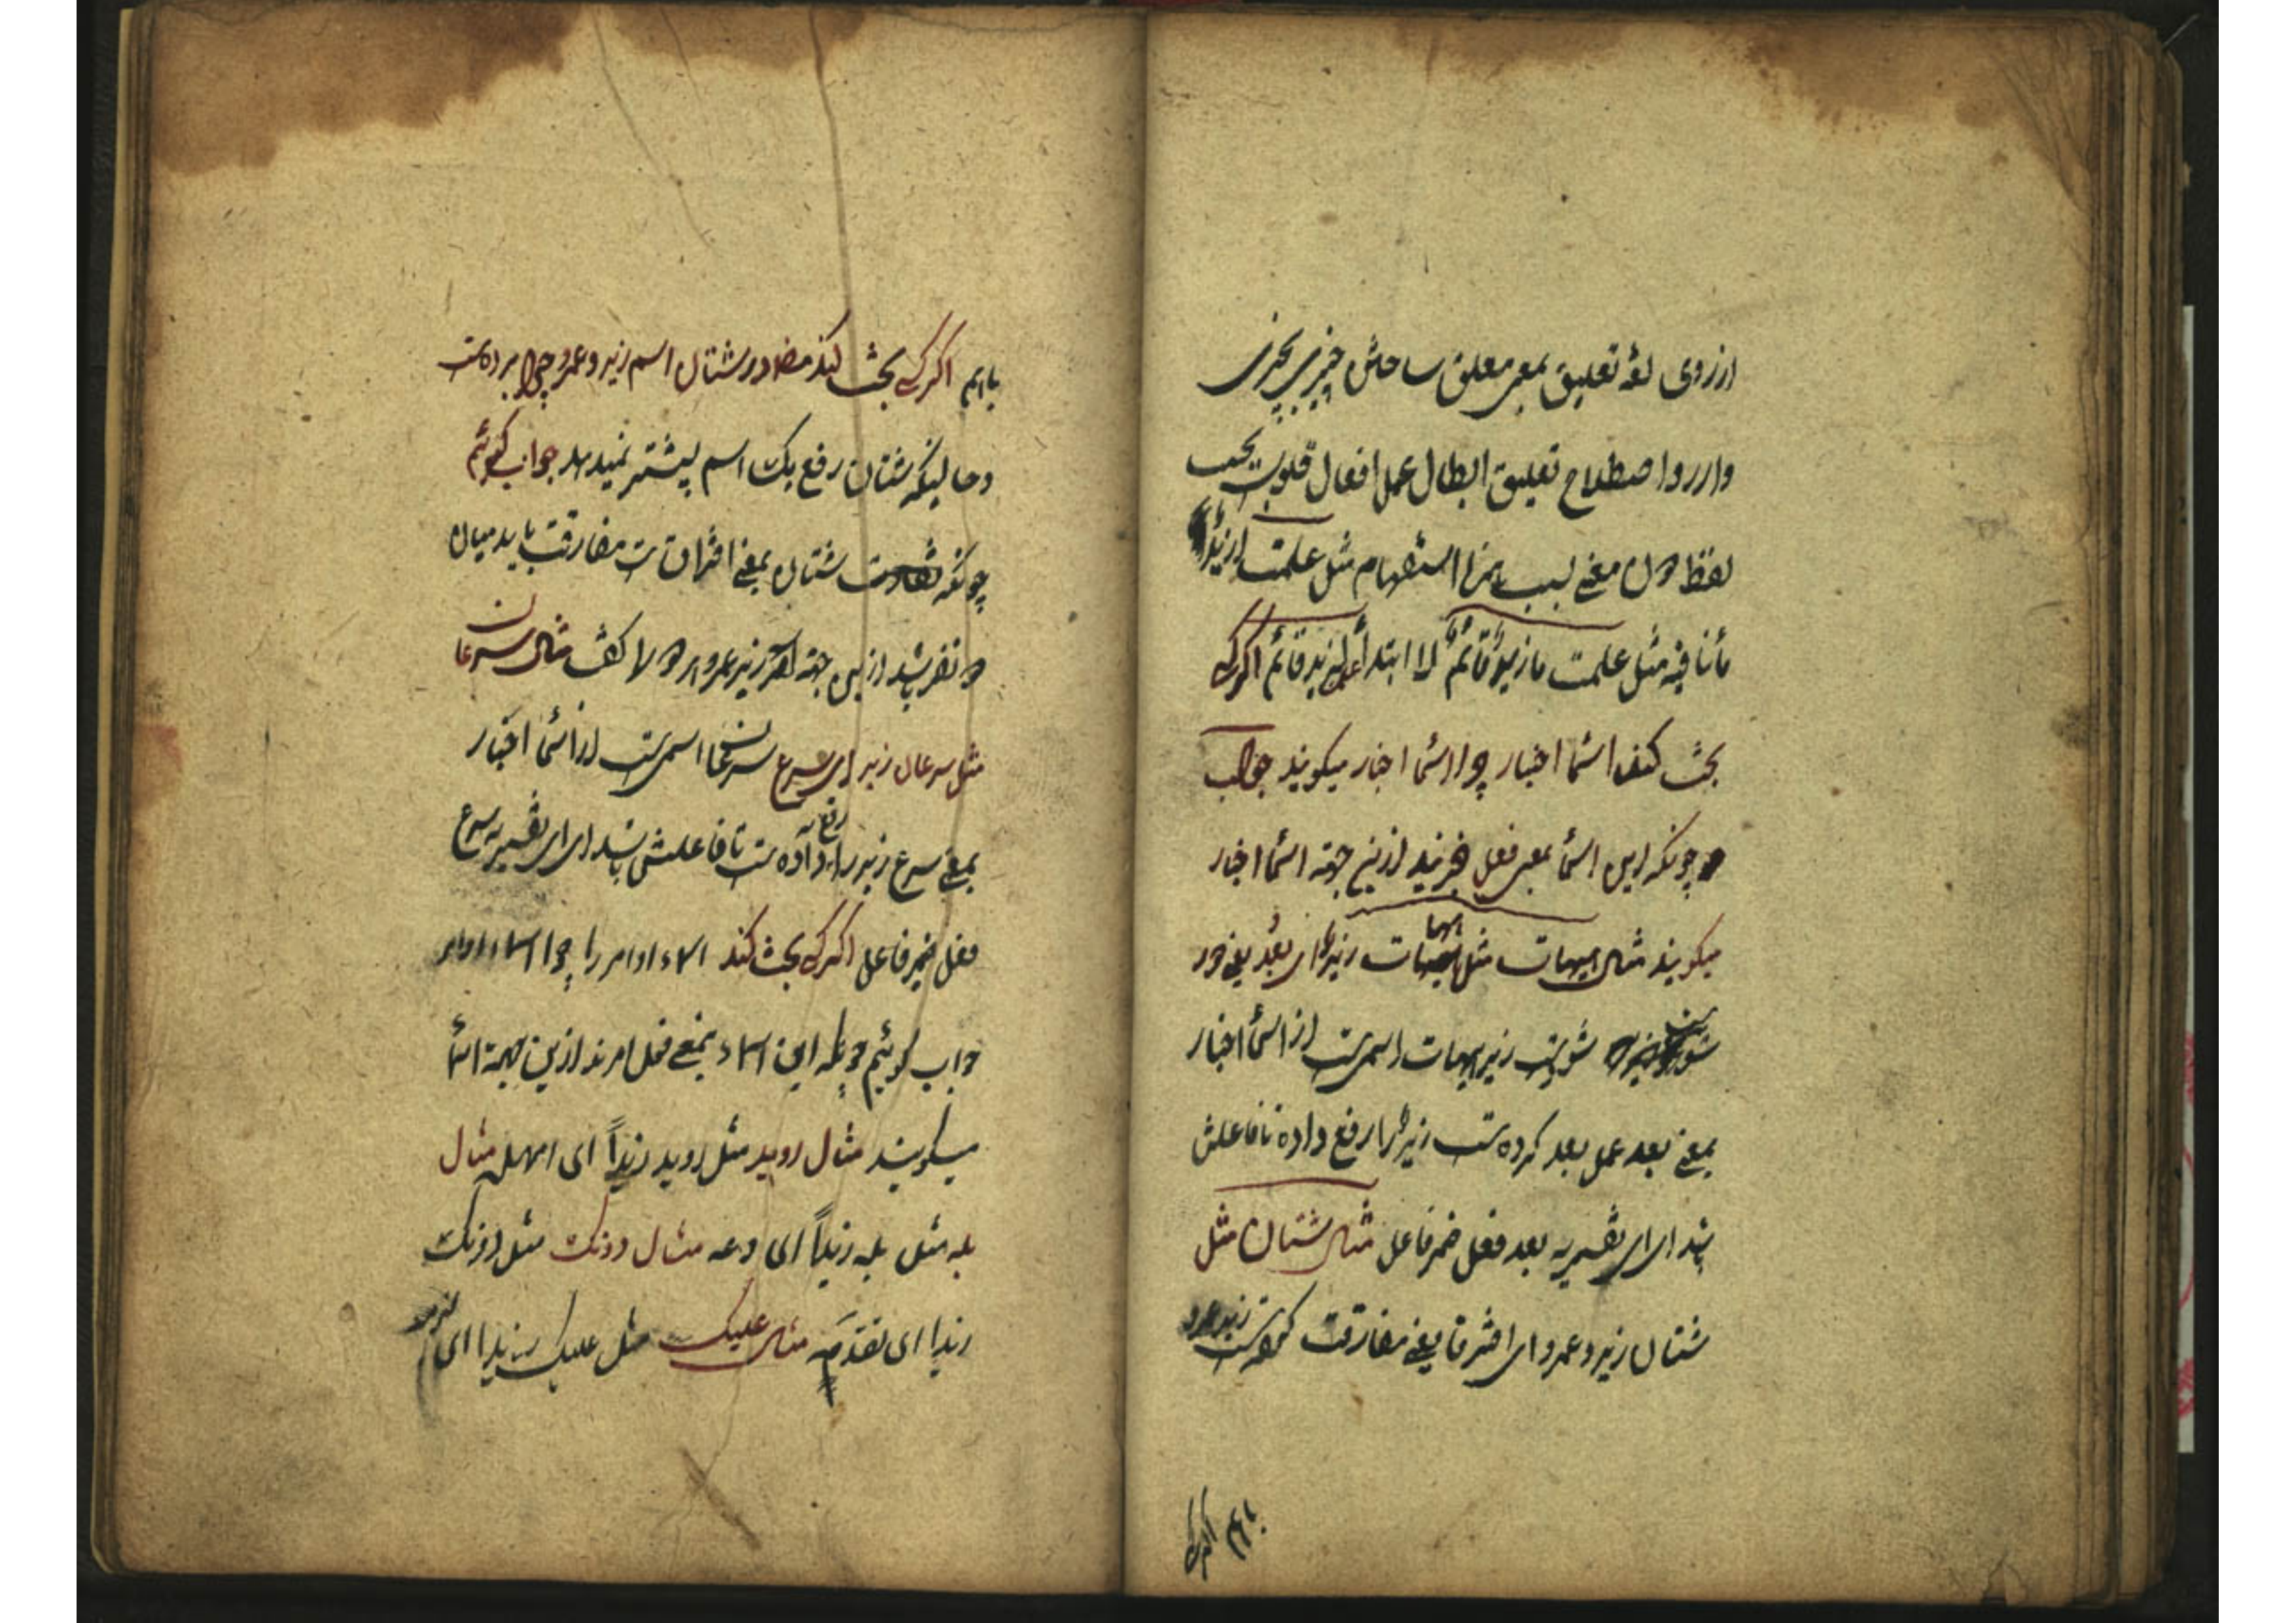 از روی لغة تعلیق بمعنی معلق ساختن چیزی بچیزی
وازرو اصطلاح تعلیق ابطال عمل افعال قلوبست بحسب
لفظ دون معنی بسبب همزۀ استفهام مثل علمت ازیدٌ
مأ نافیه مثل علمت ما زیدٌ قائمٌ لا ابتدأ لزید قائم اگر کسی
بحث کند اسمأ اخبار چرا اسمأ اخبار میکویند جواب
چونکه این اسمأ بمعنی فعل خبرند ازین جهة اسمأ اخبار
میکویند مثال هیهات مثل هیهات زیدٌ ای بعُد یعنی دور
شونده شویست زید هیهات اسمی ست از اسمأ اخبار
بمعنی بعد عمل بعد کرده ست زید را رفع داده تا فاعلش
باشد ای ای تفسیریه بعد فعل ضمر فاعل مثال شتان مثل
شتان زید و عمرو ای افترقا یعنی مفارقت کرده ست زید عمرو
باهم اگر کسی
باهم اگر کسی بحث کند در شتان اسم زید و عمرو چرا برده ست
و حالینکه شتان رفع یک اسم بیشتر نمیدهد جواب گوئیم
چونکه شتان بمعنی افتراق ست مفارقت باید میان
دو نفر باشد ازین جهة زید عمرو هر دو را گفت مثال سرعان
مثل سرعان زید ای سرع سرعان اسمی ست از اسمأ اخبار
بمعنی سرع زید را رفع داده ست تا فاعلش باشد ای ای تفسیریه سرع
فعل ضمر فاعل اگر کسی بحث کند اسماء اوامر را چرا اسماء اوامر
جواب گوئیم چونکه این اسماء بمعنی فعل امرند ازین جهة اسمأ
میکویند مثال روید مثل روید زیداً ای امهل مثال
بله مثل بله زیداً ای دعه مثال دونک مثل دونک
زیدا ای تقدّمه مثال علیک مثل علیک زیدا ای الزمه